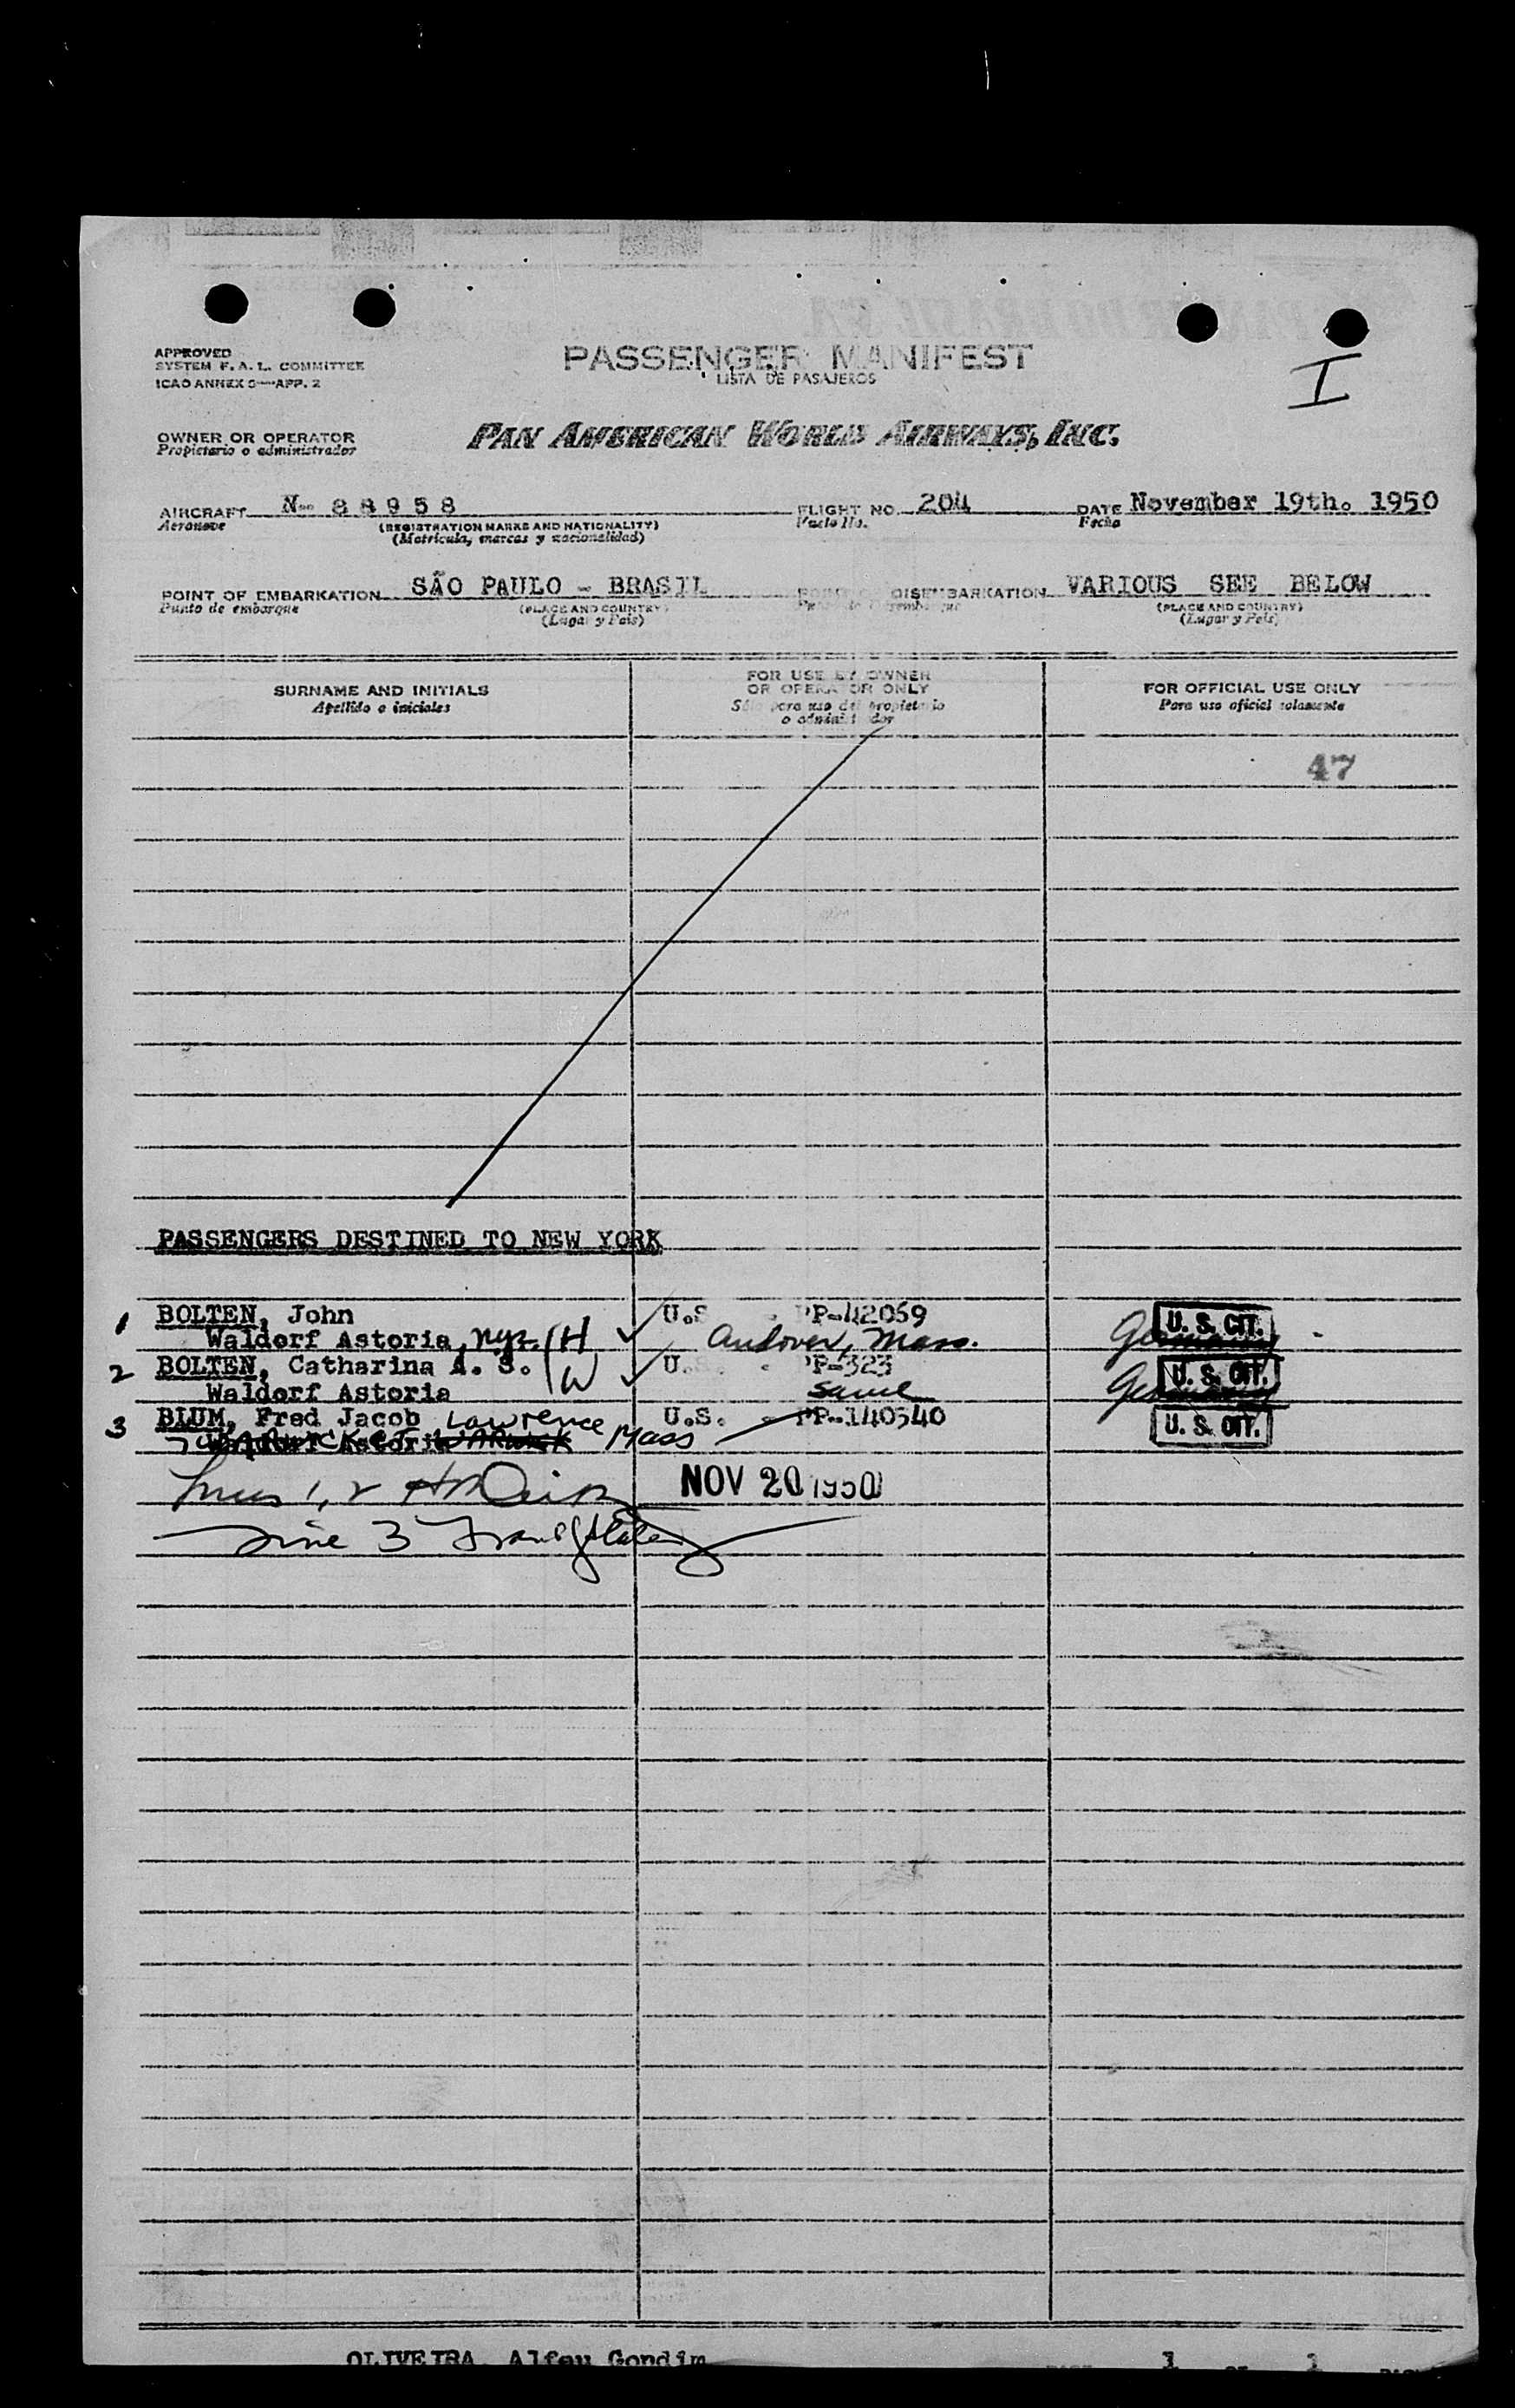 APPROVED
SYSTEM F. A. L. COMMITTEE
ICAO ANNEX 9—APP. 2
PASSENGER MANIFEST
LISTA DE PASAJEROS
I
OWNER OR OPERATOR
Propietario o administrador
PAN AMERICAN WORLD AIRWAYS, INC.
AIRCRAFT N- 88958 FLIGHT NO. 204 DATE November 19th. 1950
Aeronave (REGISTRATION MARKS AND NATIONALITY) Vuelo No. Fecha
(Matricula, marcas y nacionalidad)
POINT OF EMBARKATION SÃO PAULO - BRASIL POINT OF DISEMBARKATION VARIOUS SEE BELOW
Punto de embarque (PLACE AND COUNTRY) Punto de Desembarque (PLACE AND COUNTRY)
(Lugar y País) (Lugar y País)
SURNAME AND INITIALS FOR USE BY OWNER OR OPERATOR ONLY FOR OFFICIAL USE ONLY
Apellido e iniciales Sólo para uso del propietario o administrador Para uso oficial solamente
47
PASSENGERS DESTINED TO NEW YORK
1 BOLTEN, John U.S. PP-42059 U. S. CIT.
Waldorf Astoria, nyc. H Andover, Mass. Germany
2 BOLTEN, Catharina A. S. W U. PP-323 U. S. CIT.
Waldorf Astoria Same Germany
3 BLUM, Fred Jacob Lawrence U.S. - PP-140540 U. S. CIT.
Waldorf Astoria WARWICK Mass
Lines 1, 2 NOV 20 1950
Line 3
OLIVEIRA, Alfeu Gondim PAGE 1 OF 1